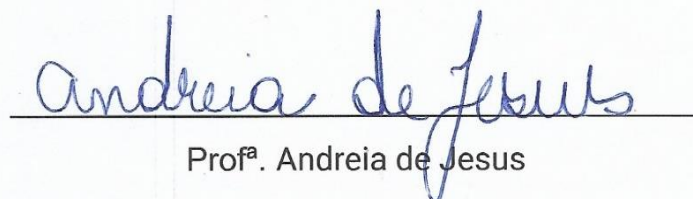 Andreia de Jesus
Profª. Andreia de Jesus